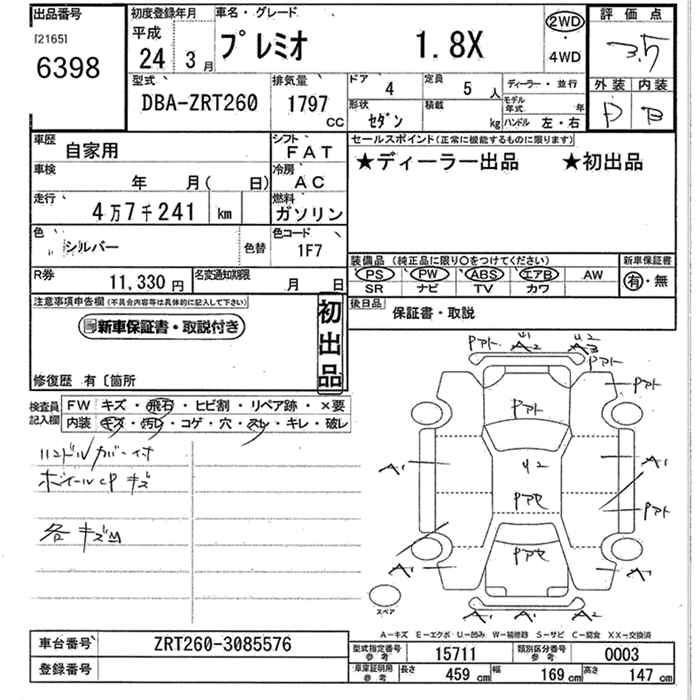 出品番号 初度登録年月 車名・グレード 評価点
[2165] 平成 プレミオ 1.8X 2WD 3.5
6398 24年 3月 ・ 4WD
外装 内装
型式 排気量 ドア 4 定員 5人 ディーラー・並行 D B
DBA-ZRT260 1797cc 形状 セダン 積載 kg モデル年式 年
ハンドル 左・右
車歴 自家用 シフト FAT セールスポイント(正常に機能するものに限ります)
車検 年 月( 日) 冷房 AC ★ディーラー出品 ★初出品
走行 4万7千241 km 燃料 ガソリン
色 シルバー 色替 色コード 1F7
装備品(純正品に限り○をつけてください) 新車保証書
R券 11,330円 名変通知期限 月 日 PS PW ABS エアB AW 有・無
SR ナビ TV カワ
注意事項申告欄(不具合内容等は具体的に記入して下さい) 初出品 後日品 保証書・取説
新車保証書・取説付き
修復歴 有〔箇所
検査員記入欄 FW キズ・飛石・ヒビ割・リペア跡・×要
内装 キズ・汚レ・コゲ・穴・スレ・キレ・破レ
ハンドルカバー付
ホイールCPキズ
各キズM
Pアト U1 A2 U2 Pアト
Pアト Pアト
A1 U2 A1
Pアセ Pアト
Pアセ
A1 A1
スペア A1 A1 A1
A-キズ E-エクボ U-凹み W-補修跡 S-サビ C-腐食 XX-交換済
車台番号 ZRT260-3085576
登録番号
型式指定番号 参考 15711 類別区分番号 参考 0003
車庫証明用 参考 長さ 459cm 幅 169cm 高さ 147cm